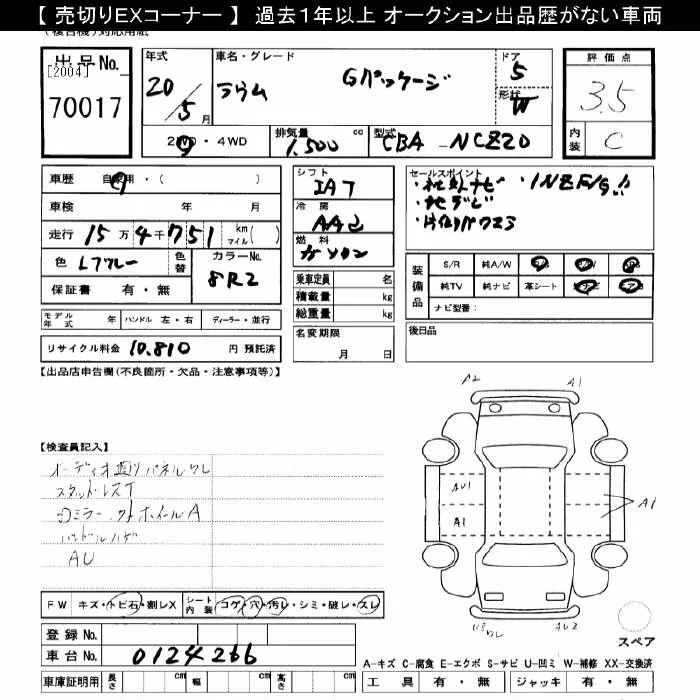 【 売切りEXコーナー 】 過去1年以上 オークション出品歴がない車両
(複合機)対応用紙
出品No.
[2004]
70017
年式
20/5月
車名・グレード
ラウム Gパッケージ
ドア
5
形状
W
評価点
3.5
内装
C
2WD・4WD
排気量 cc
1,500
型式
CBA - NCZ20
車歴 自家用・( )
車検 年 月
走行 15万4千751 km マイル( )
色 Lブルー
色替
カラーNo.
8R2
保証書 有・無
シフト
IAT
冷房
AAC
燃料
ガソリン
乗車定員 名
積載量 kg
総重量 kg
セールスポイント
・社外ナビ ・1NZ F/G!!
・地デジ
装備品
S/R 純A/W
純TV 純ナビ 革シート
ナビ型番:
モデル年式 年 ハンドル 左・右 ディーラー・並行
名変期限
月 日
後日品
リサイクル料金 10,810 円 預託済
【出品店申告欄(不良箇所・欠品・注意事項等)】
A2 A1
【検査員記入】
オーディオ廻りパネルワレ
スタッドレスT
ミラー、ホイールA
ハンドルハゲ
AU
AU1
A1
A1
ワレ AU2
スペア
FW キズ・トビ石・割レX シート内装 コゲ・穴・汚レ・シミ・破レ・スレ
登録No.
車台No. 0124266
車庫証明用 長さ cm 幅 cm 高さ cm
A-キズ C-腐食 E-エクボ S-サビ U-凹ミ W-補修 XX-交換済ミ
工具 有・無 ジャッキ 有・無